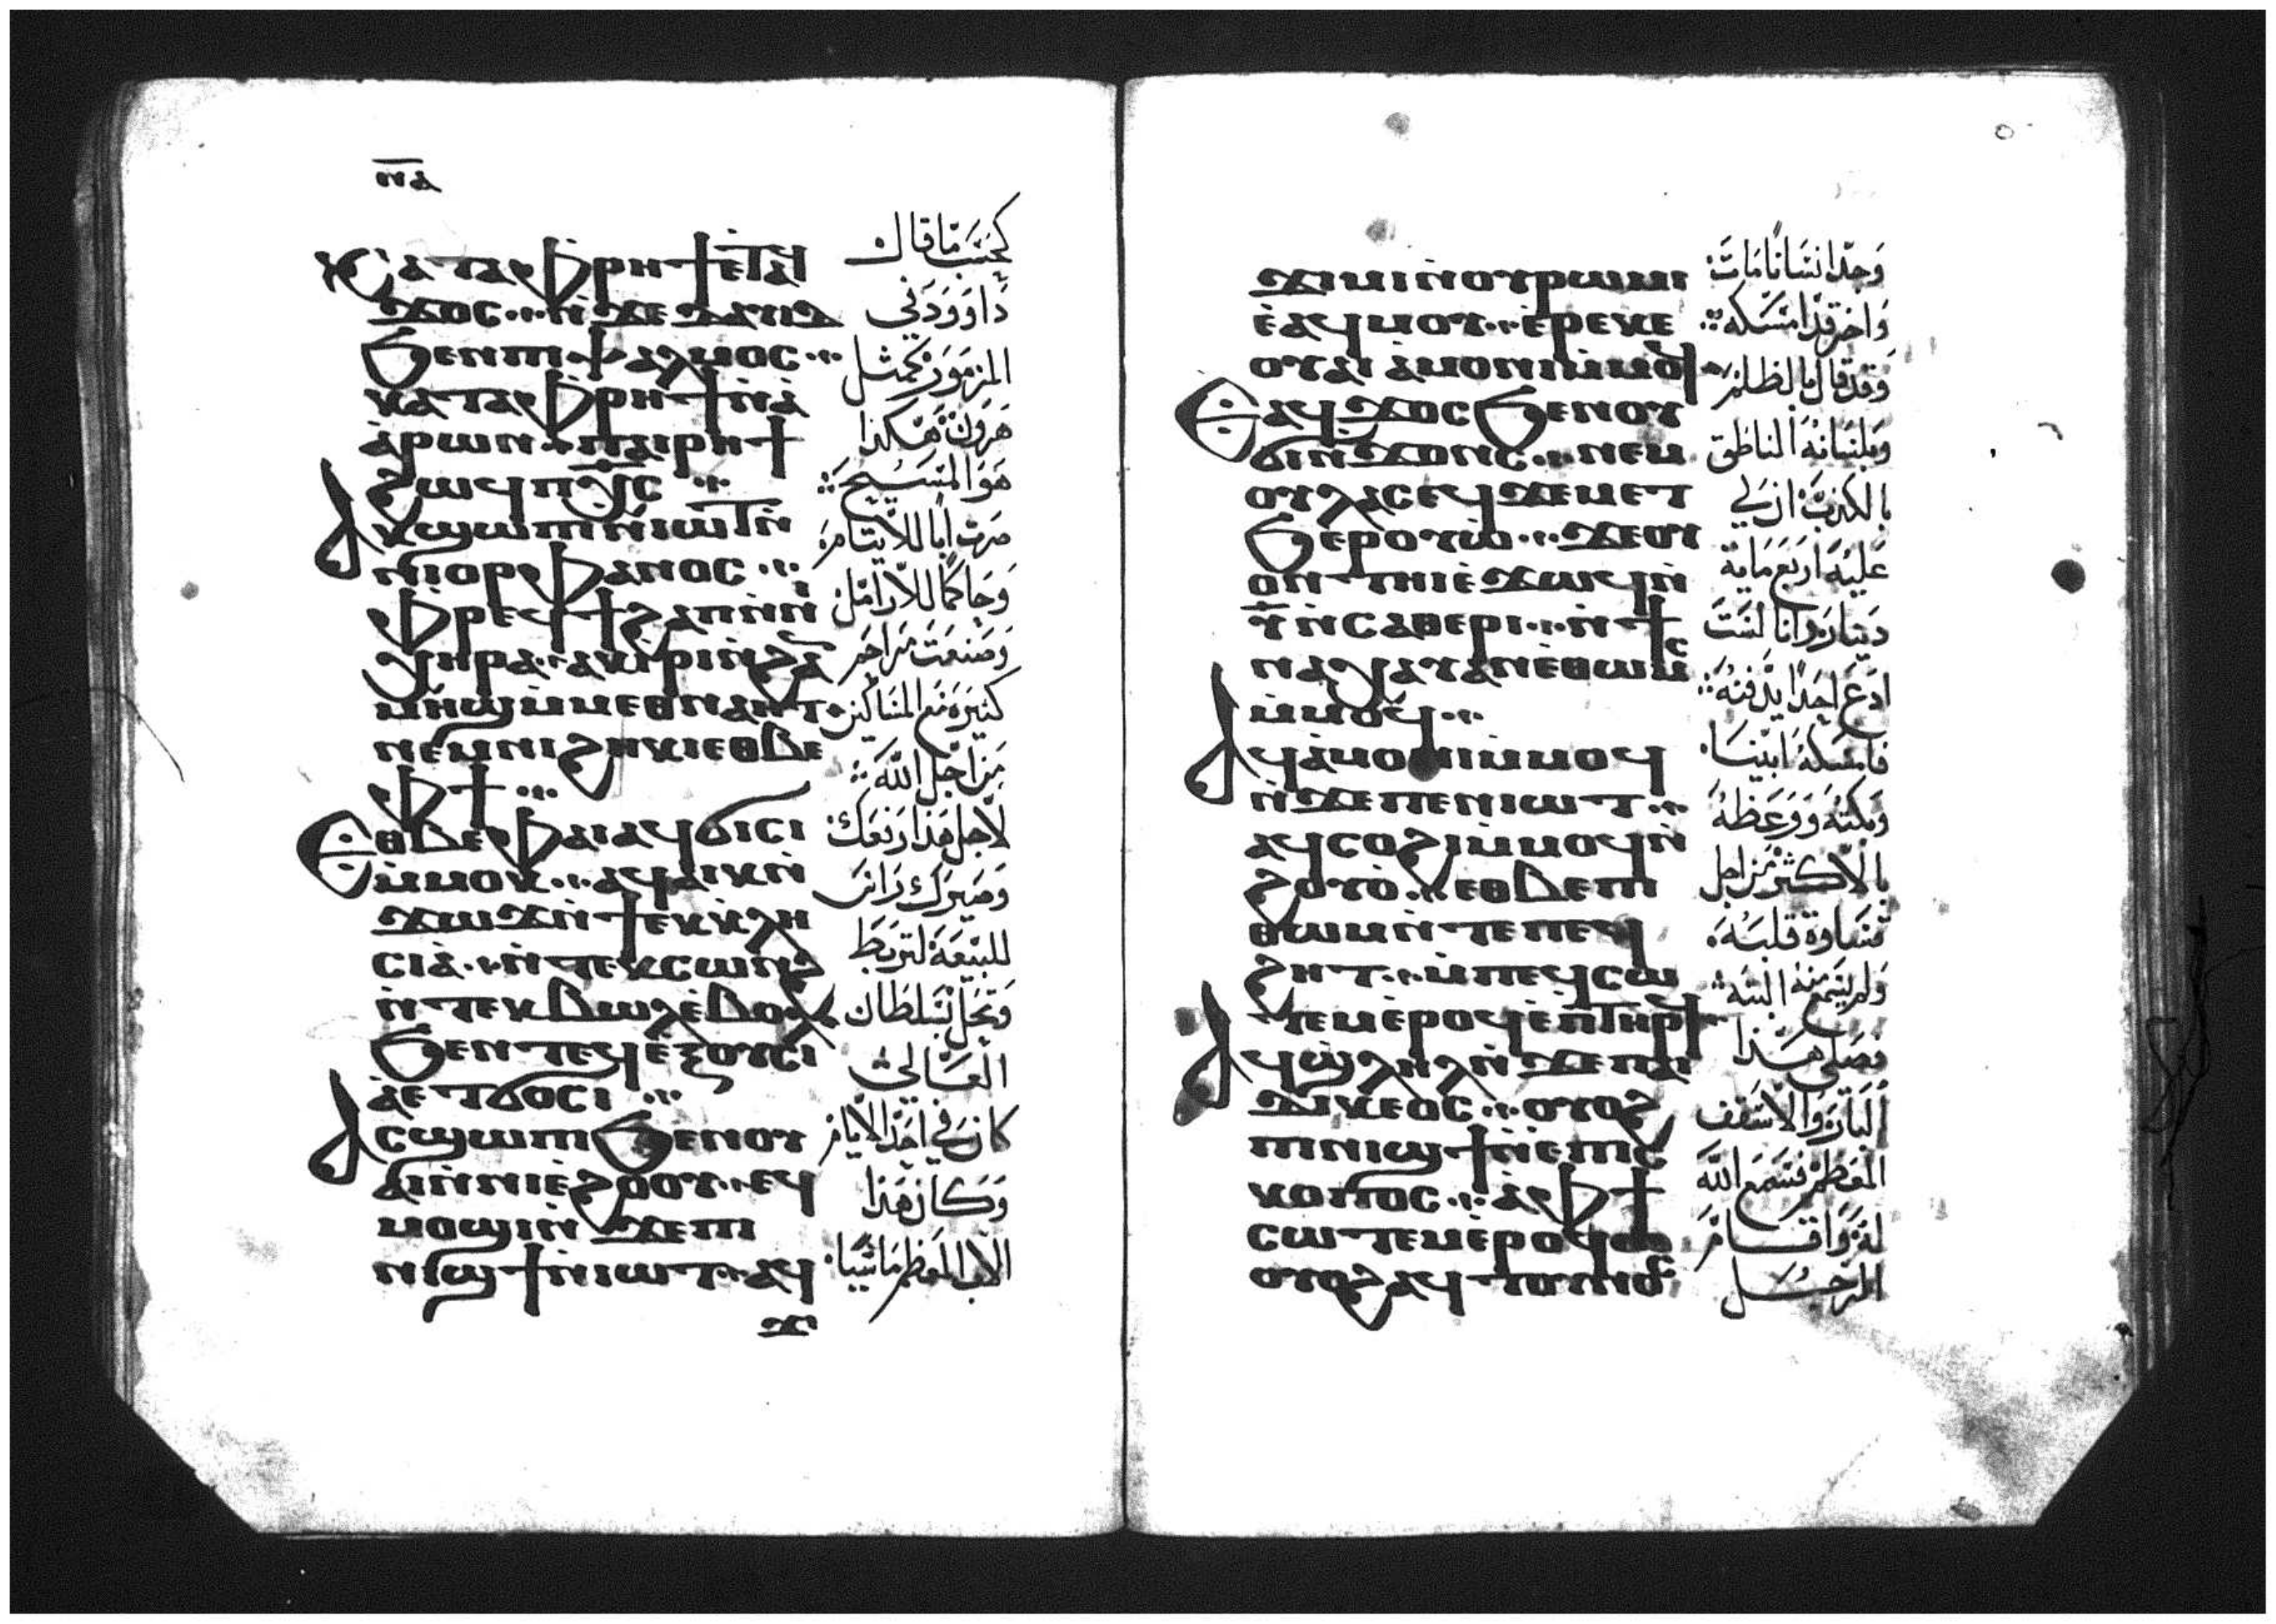 ⲛⲁ
Ⲕⲁⲧⲁ ⲫⲣⲏϯ ⲉⲧⲁϥ
ϫⲟⲥ ⲛ̀ϫⲉ ⲇⲁⲩⲓⲇ
ϧⲉⲛ ⲡⲓⲯⲁⲗⲙⲟⲥ
ⲕⲁⲧⲁ ⲫⲣⲏϯ ⲛ̀ⲁ̀
ⲁ̀ⲣⲱⲛ ⲡⲁⲓⲣⲏϯ
ϩⲱϥ ⲡⲭ̅ⲥ
Ⲁⲕϣⲱⲡⲓ ⲛ̀ⲓⲱⲧ ⲛ̀
ⲛⲓⲟⲣⲫⲁⲛⲟⲥ
ⲫⲣⲉϥϯϩⲁⲡ ⲛ̀ⲛⲓ
ⲭⲏⲣⲁ ⲁⲕⲓⲣⲓ ⲛ̀ϩⲁⲛ
ⲙⲏϣ ⲙ̀ⲙⲉⲑⲛⲁⲏⲧ
ⲛⲉⲙ ⲛⲓϩⲏⲕⲓ ⲉⲑⲃⲉ
ⲫϯ
Ⲉⲑⲃⲉ ⲫⲁⲓ ⲁϥϭⲓⲥⲓ
ⲙ̀ⲙⲟⲕ ⲁϥⲁⲓⲕ ⲛ̀
ϫⲱϫ ⲛ̀ϯⲉⲕⲕⲗⲏ
ⲥⲓⲁ̀ ⲛ̀ⲧⲉⲕⲥⲱⲛϩ
ⲛ̀ⲧⲉⲕⲃⲱⲗ ⲉ̀ⲃⲟⲗ
ϧⲉⲛ ⲧⲉϥⲉ̀ⲝⲟⲩⲥⲓ
ⲁ̀ ⲉⲧϭⲟⲥⲓ
Ⲁⲥϣⲱⲡⲓ ϧⲉⲛ ⲟⲩ
ⲁⲓ ⲛ̀ⲛⲓⲉ̀ϩⲟⲟⲩ ⲉϥ
ⲙⲟϣⲓ ⲛ̀ϫⲉ ⲡⲓ
ⲛⲓϣϯ ⲛ̀ⲓⲱⲧ ⲁϥ
ϫⲓ
كحسب ما قال
داوود في
المزمور كمثل
هرون هكذا
هو المسيح
صرت أبا للأيتام
وحاكما للأرامل
وصنعت مراحم
كثيرة مع المساكين
من أجل الله
لأجل هذا رفعك
وصيرك رأس
للبيعة لتربط
وتحل بسلطان
العالي
كان في أحد الأيام
وكان هذا
الأب المعظم ماشيا
ϫⲓⲙⲓ ⲛ̀ⲟⲩⲣⲱⲙⲓ
ⲉ̀ⲁϥⲙⲟⲩ ⲉ̀ⲣⲉ ⲕⲉ
ⲟⲩⲁⲓ ⲁ̀ⲙⲟⲛⲓ ⲙ̀ⲙⲟϥ
Ⲉⲁϥϫⲟⲥ ϧⲉⲛ ⲟⲩ
ϭⲓⲛϫⲟⲛⲥ ⲛⲉⲙ
ⲟⲩⲗⲁⲥ ⲉϥϫⲉⲙⲉⲧ
ϧⲉⲣⲟⲩⲱ̀ ϫⲉ ⲟⲩ
ⲟⲛ ⲧⲏⲓ ⲉ̀ϫⲱϥ ⲛ̀
ⲩ̅ ⲛ̀ⲥⲁⲑⲉⲣⲓ ⲛ̀ϯ
ⲛⲁⲭⲁⲩ ⲁⲛ ⲉ̀ⲑⲱⲙⲥ
ⲙ̀ⲙⲟϥ
Ⲁϥⲁ̀ⲙⲟⲛⲓ ⲙ̀ⲙⲟϥ
ⲛ̀ϫⲉ ⲡⲉⲛⲓⲱⲧ
ⲁϥⲥⲟϩⲓ ⲙ̀ⲙⲟϥ ⲛ̀
ϩⲟⲩⲟ̀ ⲉⲑⲃⲉ ⲡⲓ
ⲑⲱⲙ ⲛ̀ⲧⲉ ⲡⲉϥ
ϩⲏⲧ ⲙ̀ⲡⲉϥⲥⲱ
ⲧⲉⲙ ⲉ̀ⲣⲟϥ ⲉ̀ⲡⲧⲏⲣϥ
Ⲁϥϣⲗⲏⲗ ⲛ̀ϫⲉ ⲡⲁⲓ
ⲇⲓⲕⲉⲟⲥ ⲟⲩⲟϩ
ⲡⲓⲛⲓϣϯ ⲛ̀ⲉⲡⲓⲥ
ⲕⲟⲡⲟⲥ ⲁ̀ ⲫϯ
ⲥⲱⲧⲉⲙ ⲉ̀ⲣⲟϥ
ⲟⲩⲟϩ ⲁϥⲧⲟⲩⲛⲟⲥ
وجد إنسانا مات
وآخر قد أمسكه
وقد قال بالظلم
وبلسانه الناطق
بالكذب أن لي
عليه أربع مائة
دينار وأنا لست
أدع أحدا يدفنه
فأمسكه أبينا
وبكته ووعظه
بالأكثر من أجل
قساوة قلبه
ولم يسمع منه البتة
فصلى هذا
البار والأسقف
المعظم فسمع الله
له وأقام
الرجل